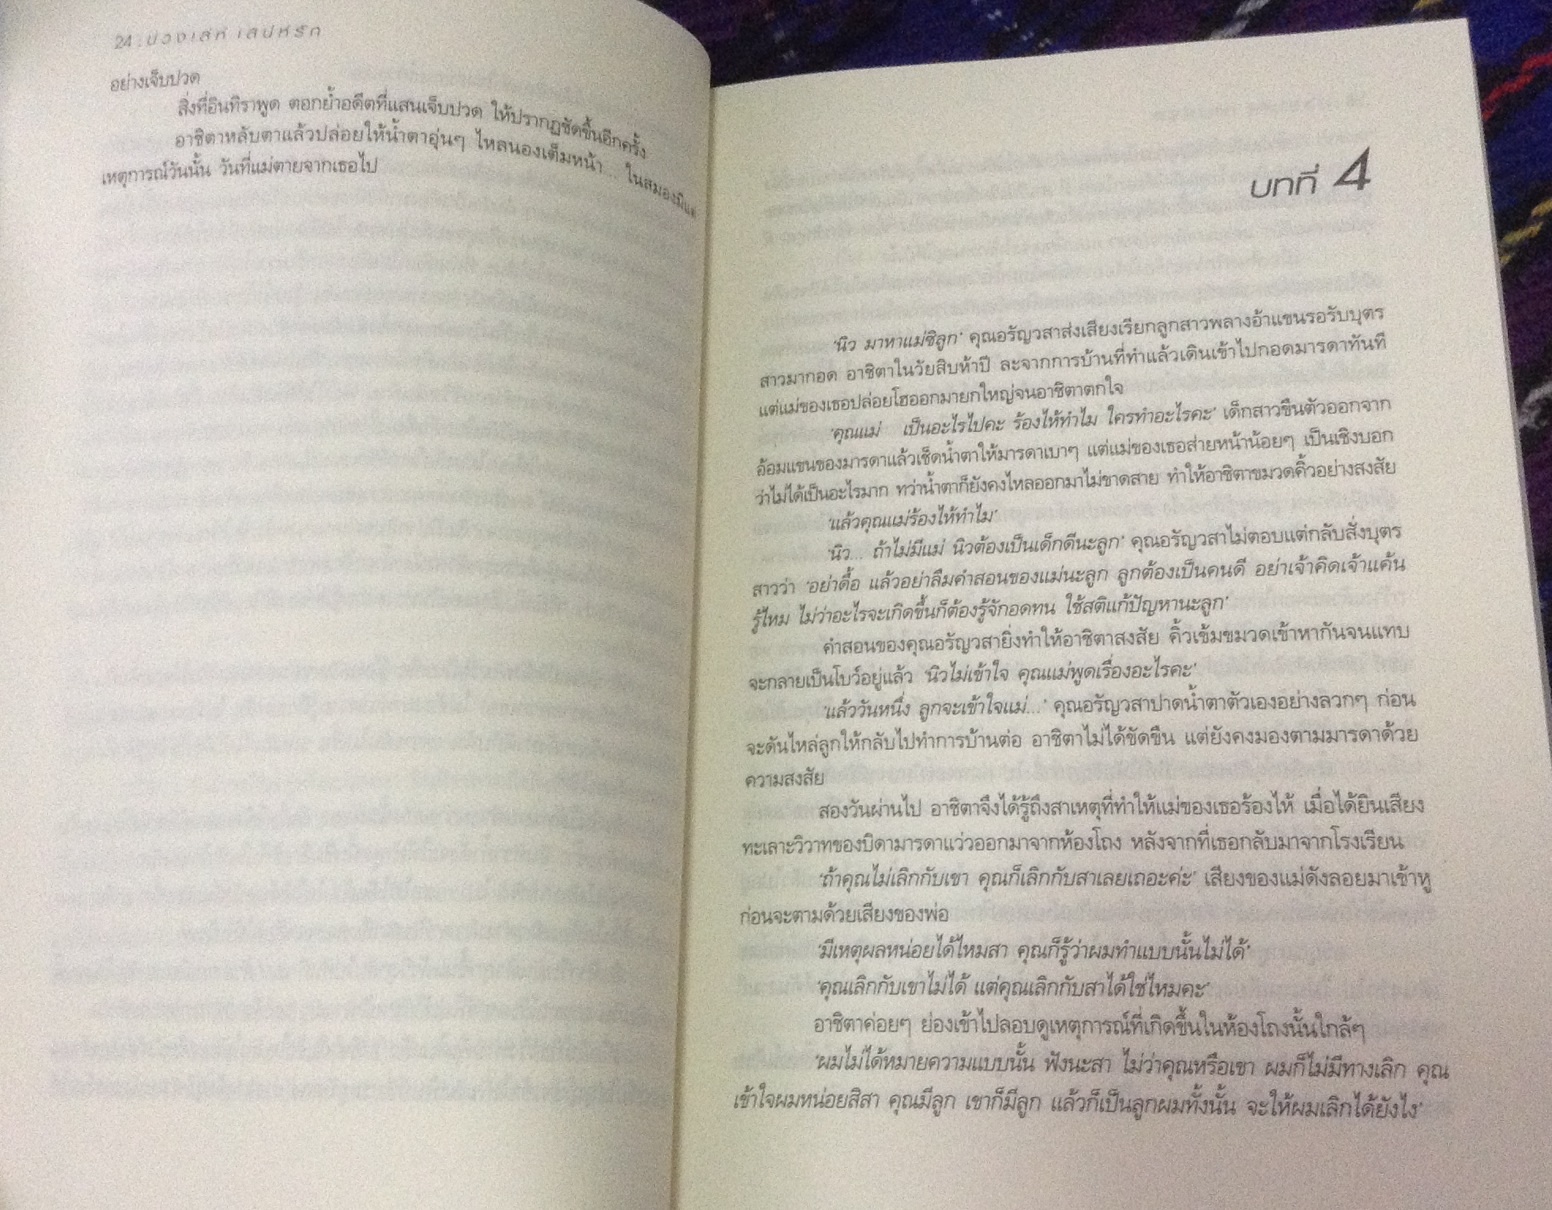 24 : บ่วงเล่ห์ เสน่ห์รัก
อย่างเจ็บปวด
สิ่งที่อินทิราพูด ตอกย้ำอดีตที่แสนเจ็บปวด ให้ปรากฏชัดขึ้นอีกครั้ง
อาชิตาหลับตาแล้วปล่อยให้น้ำตาอุ่นๆ ไหลนองเต็มหน้า... ในสมองมีแต่
เหตุการณ์วันนั้น วันที่แม่ตายจากเธอไป
บทที่ 4
‘นิว มาหาแม่ซิลูก’ คุณอรัญวสาส่งเสียงเรียกลูกสาวพลางอ้าแขนรอรับบุตร
สาวมากอด อาชิตาในวัยสิบห้าปี ละจากการบ้านที่ทำแล้วเดินเข้าไปกอดมารดาทันที
แต่แม่ของเธอปล่อยโฮออกมายกใหญ่จนอาชิตาตกใจ
‘คุณแม่ เป็นอะไรไปคะ ร้องไห้ทำไม ใครทำอะไรคะ’ เด็กสาวขืนตัวออกจาก
อ้อมแขนของมารดาแล้วเช็ดน้ำตาให้มารดาเบาๆ แต่แม่ของเธอส่ายหน้าน้อยๆ เป็นเชิงบอก
ว่าไม่ได้เป็นอะไรมาก ทว่าน้ำตาก็ยังคงไหลออกมาไม่ขาดสาย ทำให้อาชิตาขมวดคิ้วอย่างสงสัย
‘แล้วคุณแม่ร้องไห้ทำไม’
‘นิว... ถ้าไม่มีแม่ นิวต้องเป็นเด็กดีนะลูก’ คุณอรัญวสาไม่ตอบแต่กลับสั่งบุตร
สาวว่า ‘อย่าดื้อ แล้วอย่าลืมคำสอนของแม่นะลูก ลูกต้องเป็นคนดี อย่าเจ้าคิดเจ้าแค้น
รู้ไหม ไม่ว่าอะไรจะเกิดขึ้นก็ต้องรู้จักอดทน ใช้สติแก้ปัญหานะลูก’
คำสอนของคุณอรัญวสายิ่งทำให้อาชิตาสงสัย คิ้วเข้มขมวดเข้าหากันจนแทบ
จะกลายเป็นโบว์อยู่แล้ว ‘นิวไม่เข้าใจ คุณแม่พูดเรื่องอะไรคะ’
‘แล้ววันหนึ่ง ลูกจะเข้าใจแม่...’ คุณอรัญวสาปาดน้ำตาตัวเองอย่างลวกๆ ก่อน
จะดันไหล่ลูกให้กลับไปทำการบ้านต่อ อาชิตาไม่ได้ขัดขืน แต่ยังคงมองตามมารดาด้วย
ความสงสัย
สองวันผ่านไป อาชิตาจึงได้รู้ถึงสาเหตุที่ทำให้แม่ของเธอร้องไห้ เมื่อได้ยินเสียง
ทะเลาะวิวาทของบิดามารดาแว่วออกมาจากห้องโถง หลังจากที่เธอกลับมาจากโรงเรียน
‘ถ้าคุณไม่เลิกกับเขา คุณก็เลิกกับสาเลยเถอะค่ะ’ เสียงของแม่ดังลอยมาเข้าหู
ก่อนจะตามด้วยเสียงของพ่อ
‘มีเหตุผลหน่อยได้ไหมสา คุณก็รู้ว่าผมทำแบบนั้นไม่ได้’
‘คุณเลิกกับเขาไม่ได้ แต่คุณเลิกกับสาได้ใช่ไหมคะ’
อาชิตาค่อยๆ ย่องเข้าไปลอบดูเหตุการณ์ที่เกิดขึ้นในห้องโถงนั้นใกล้ๆ
‘ผมไม่ได้หมายความแบบนั้น ฟังนะสา ไม่ว่าคุณหรือเขา ผมก็ไม่มีทางเลิก คุณ
เข้าใจผมหน่อยสิสา คุณมีลูก เขาก็มีลูก แล้วก็เป็นลูกผมทั้งนั้น จะให้ผมเลิกได้ยังไง’